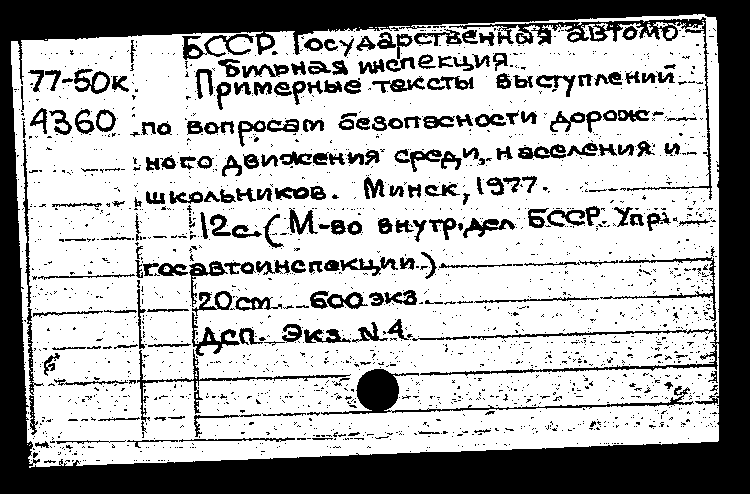 БССР. Государственная автомо-
бильная инспекция.
77-50к Примерные тексты выступлений
4360 по вопросам безопасности дорож-
ного движения среди населения и
школьников. Минск, 1977.
12с. (М-во внутр. дел БССР. Упр.
госавтоинспекции).
20см. 600 экз.
ДСП. Экз. N 4.